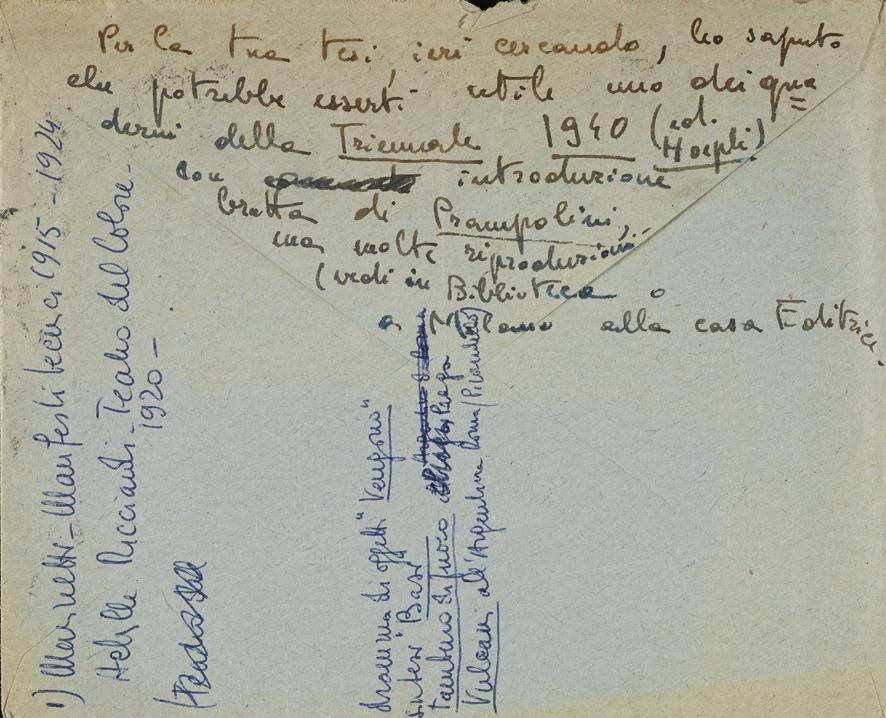 Per la tua tesi, ieri cercando, ho saputo
che potrebbe esserti utile uno dei qua=
derni della Triennale 1940 (ed.
Hoepli)
con introduzione
bretta di Prampolini,
ma molte riproduzioni
(vedi in Biblioteca o
a Milano alla casa Editrice.
1) Marinetti - Manifesti tecnici 1915 - 1924
Achille Ricciardi - Teatro del Colore -
1920 -
dramma di oggetti "Vengono"
sintesi Basi
tamburo di fuoco Praga
Vulcani all'Argentina Roma (Pirandello)